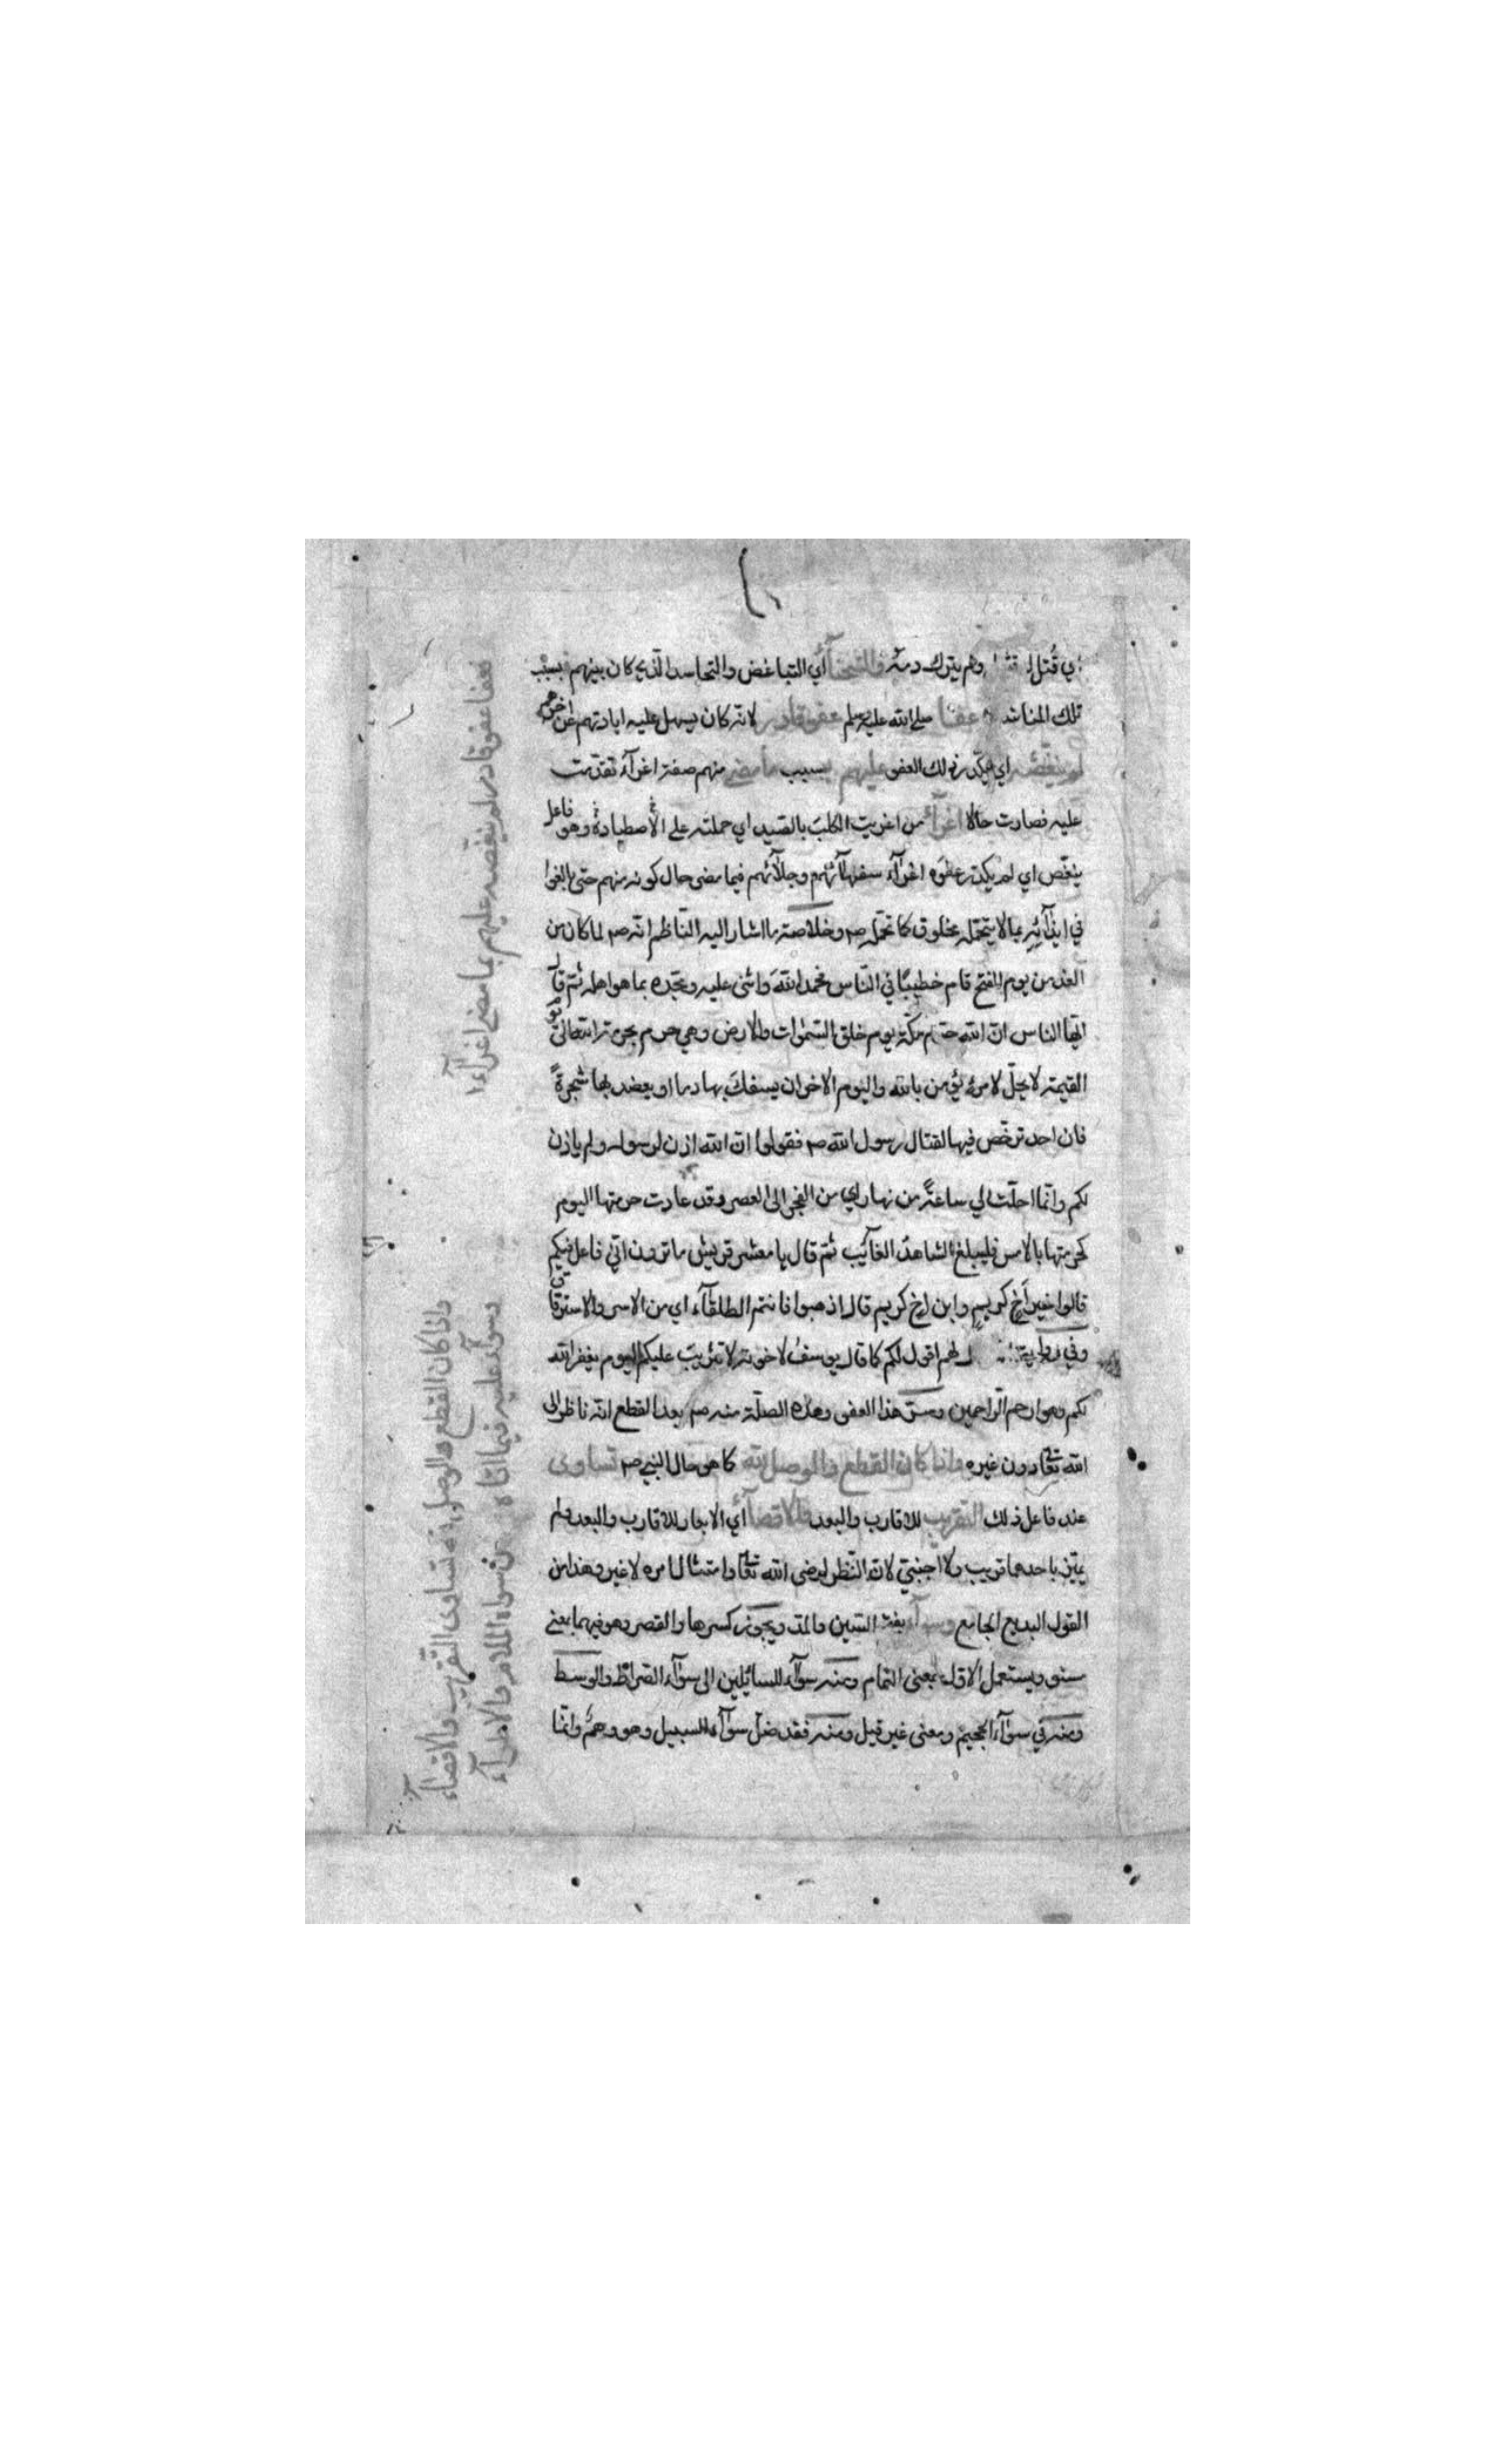 اي قُتل وهم بترك دمه فالشحنآ أي التباغض والتحاسد الّذي كان بينهم بسبب
تلك المناشد عفـا صلى الله عليه وسلم عفو قادر لانّه كان يسهل عليه ابادتهم عن اخرهم
لم ينغّصه اي يكدّر ذلك العفو عليهم بسبب ما مضى منهم صفة اغرآء تقدّمت
عليه فصارت حالا اغرآء من اغريت الكلبَ بالصّيد اي حملته على الاصطياد وهو فاعل
ينغّص اي لم يكدّر عفوَه اغرآء سفهآئهم وجلآئهم فيما مضى حال كونه منهم حتى بالغوا
في ايذآئه بما لا يتحمّله مخلوق كما تحمّل صم وخلاصة ما اشار اليه النّاظم انّه صم لما كان من
الغد من يوم الفتح قام خطيبًا في النّاس فحمد اللهَ واثنى عليه ومجّده بما هو اهله ثمّ قال
ايّها الناس انّ الله حرّم مكّة يوم خلق السّمٰوات والارض وهي حرم بحرمة الله تعالى يوم
القيٰمة لا يحلّ لامرئ يؤمن بالله واليوم الاخر ان يسفك بها دما او يعضد بها شجرةً
فان احد ترخّص فيها لقتال رسول الله صم فقولوا انّ الله اذن لرسوله ولم ياذن
لكم وانّما احلّت لي ساعةً من نهار اي من الفجر الى العصر وقد عادت حرمتها اليوم
كحرمتها بالامس فليبلغ الشاهدُ الغآئب ثمّ قال يا معشر قريش ما ترون انّي فاعل فيكم
قالوا خير أخ كريم وابن اخ كريم قال اذهبوا فانتم الطلقآء اي من الاسر والاسترقاق
وفي رواية لهم اقول لكم كما قال يوسفُ لاخوته لا تثريبَ عليكم اليوم يغفر الله
لكم وهو ارحم الرّاحمين وسرّ هذا العفو وهذه الصلة منه صم بعد القطع انّه ناظر الى
الله تعٰا دون غيره واذا كان القطع والوصل لله كما هو حال النبي صم تساوى
عند فاعل ذلك التّقريب للاقارب والبعد والاقصآء أي الابعاد للاقارب والبعد ولم
يتميّز باحدهما قريب ولا اجنبيّ لانه النّظر لرضى الله تعٰا وامتثال امره لا غير وهذا من
القول البديع الجامع وسوآء بفتح السّين والمدّ ويجوز كسرها والقصر وهو فيهما بمعنى
مستو ويستعمل الاوّل بمعنى التمام ومنه سوآء للسائلين الى سوآء الصّراط والوسط
ومنه في سوآء الجحيم ومعنى غير قيل ومنه فقد ضلّ سوآء السبيل وهو وهمٌ وانّما
فعفا عفو قادر لم ينغّصه عليهم بما مضى اغرآء
واذا كان القطع والوصل لله تساوى التّقريب والاقصآء
وسوآء عليه فيما اتاه من سواه الملام والاطرآء